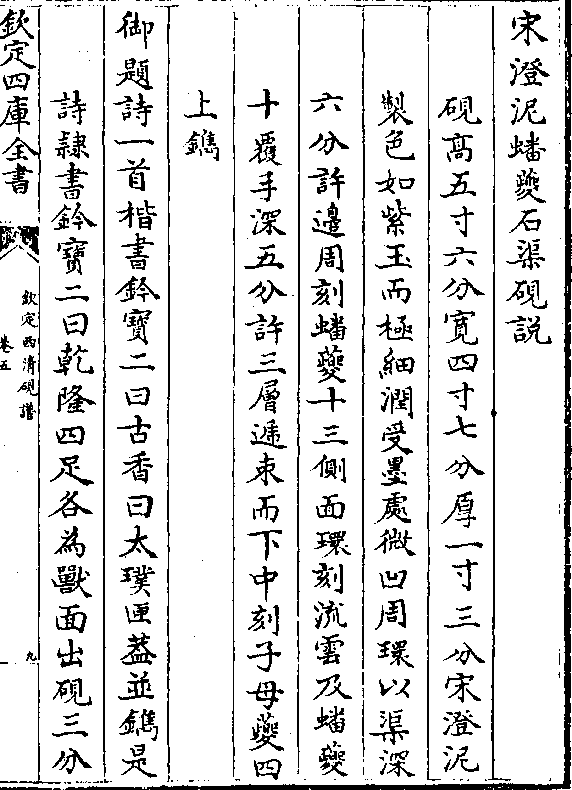 宋澄泥蟠夔石渠硯説
硯髙五寸六分寛四寸七分厚一寸三分宋澄泥
製色如紫玉而極細潤受墨處微凹周環以渠深
六分許邉周刻蟠夔十三側面環刻流雲及蟠夔
十覆手深五分許三層遞束而下中刻子母夔四
上鐫
御題詩一首楷書鈐寶二曰古香曰太璞匣葢並鐫是
詩隸書鈐寶二曰乾隆四足各為獸面出硯三分
欽定四庫全書
欽定西清硯譜
卷五
九